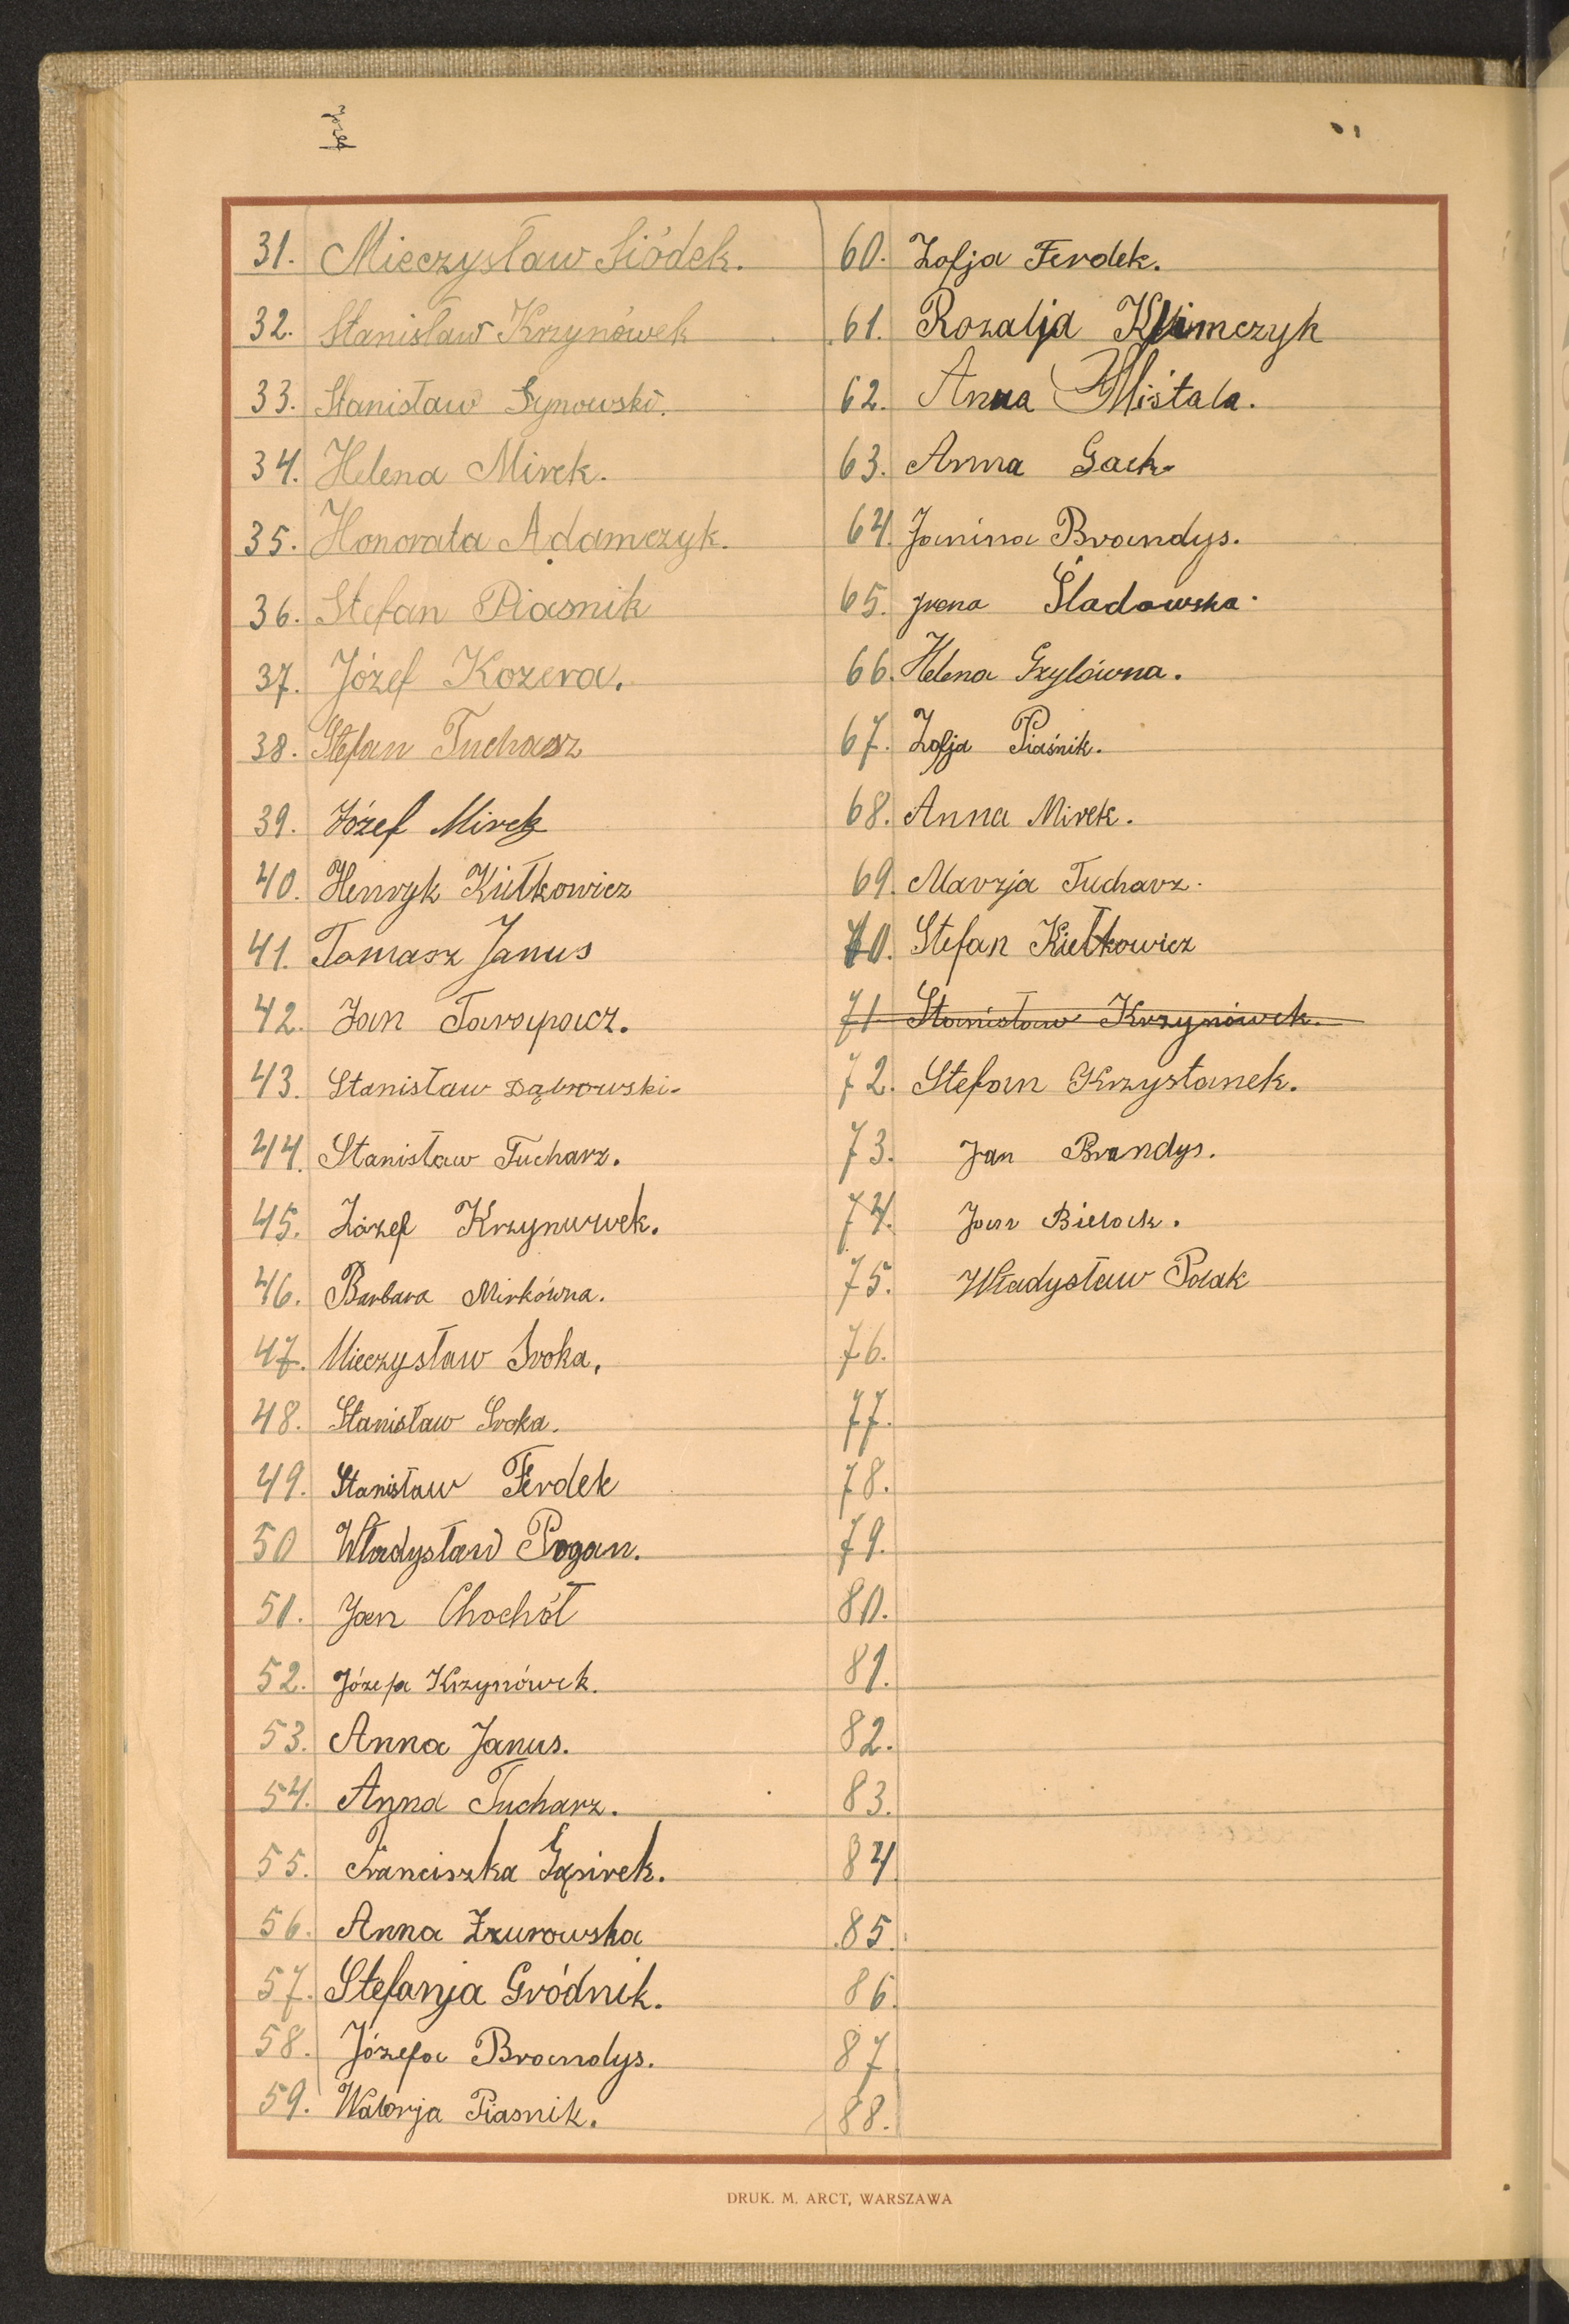 Józef
31. Mieczysław Siódek.
32. Stanisław Krzynówek
33. Stanisław Synowski.
34. Helena Mirek.
35. Honorata Adamczyk.
36. Stefan Piasnik
37. Józef Kozera.
38. Stefan Tucharz
39. Józef Mirek
40. Henryk Kiełkowicz
41. Tomasz Janus
42. Jan Tarapacz.
43. Stanisław Dąbrowski.
44. Stanisław Tucharz.
45. Józef Krzynuwek.
46. Barbara Mirkówna.
47. Mieczysław Sroka.
48. Stanisław Sroka.
49. Stanisław Ferdek
50 Władysław Pogan.
51. Jan Chochół
52. Józefa Krzynówek.
53. Anna Janus.
54. Anna Tucharz.
55. Franciszka Gąsirek.
56. Anna Zzurowska
57. Stefanja Gródnik.
58. Józefa Brandys.
59. Walerja Piasnik.
60. Zofja Ferdek.
61. Rozalja Klimczyk
62. Anna Miśtala.
63. Anna Gack.
64. Janina Brandys.
65. Irena Śladowska.
66. Helena Gzylówna.
67. Zofja Piaśnik.
68. Anna Mirek.
69. Marzja Tucharz.
70. Stefan Kiełkowicz
71 Stanisław Krzynówek.
72. Stefan Krzystanek.
73. Jan Brandys.
74. Jan Bielack.
75. Władysław Polak
76.
77.
78.
79.
80.
81.
82.
83.
84
85.
86.
87
88.
DRUK. M. ARCT, WARSZAWA